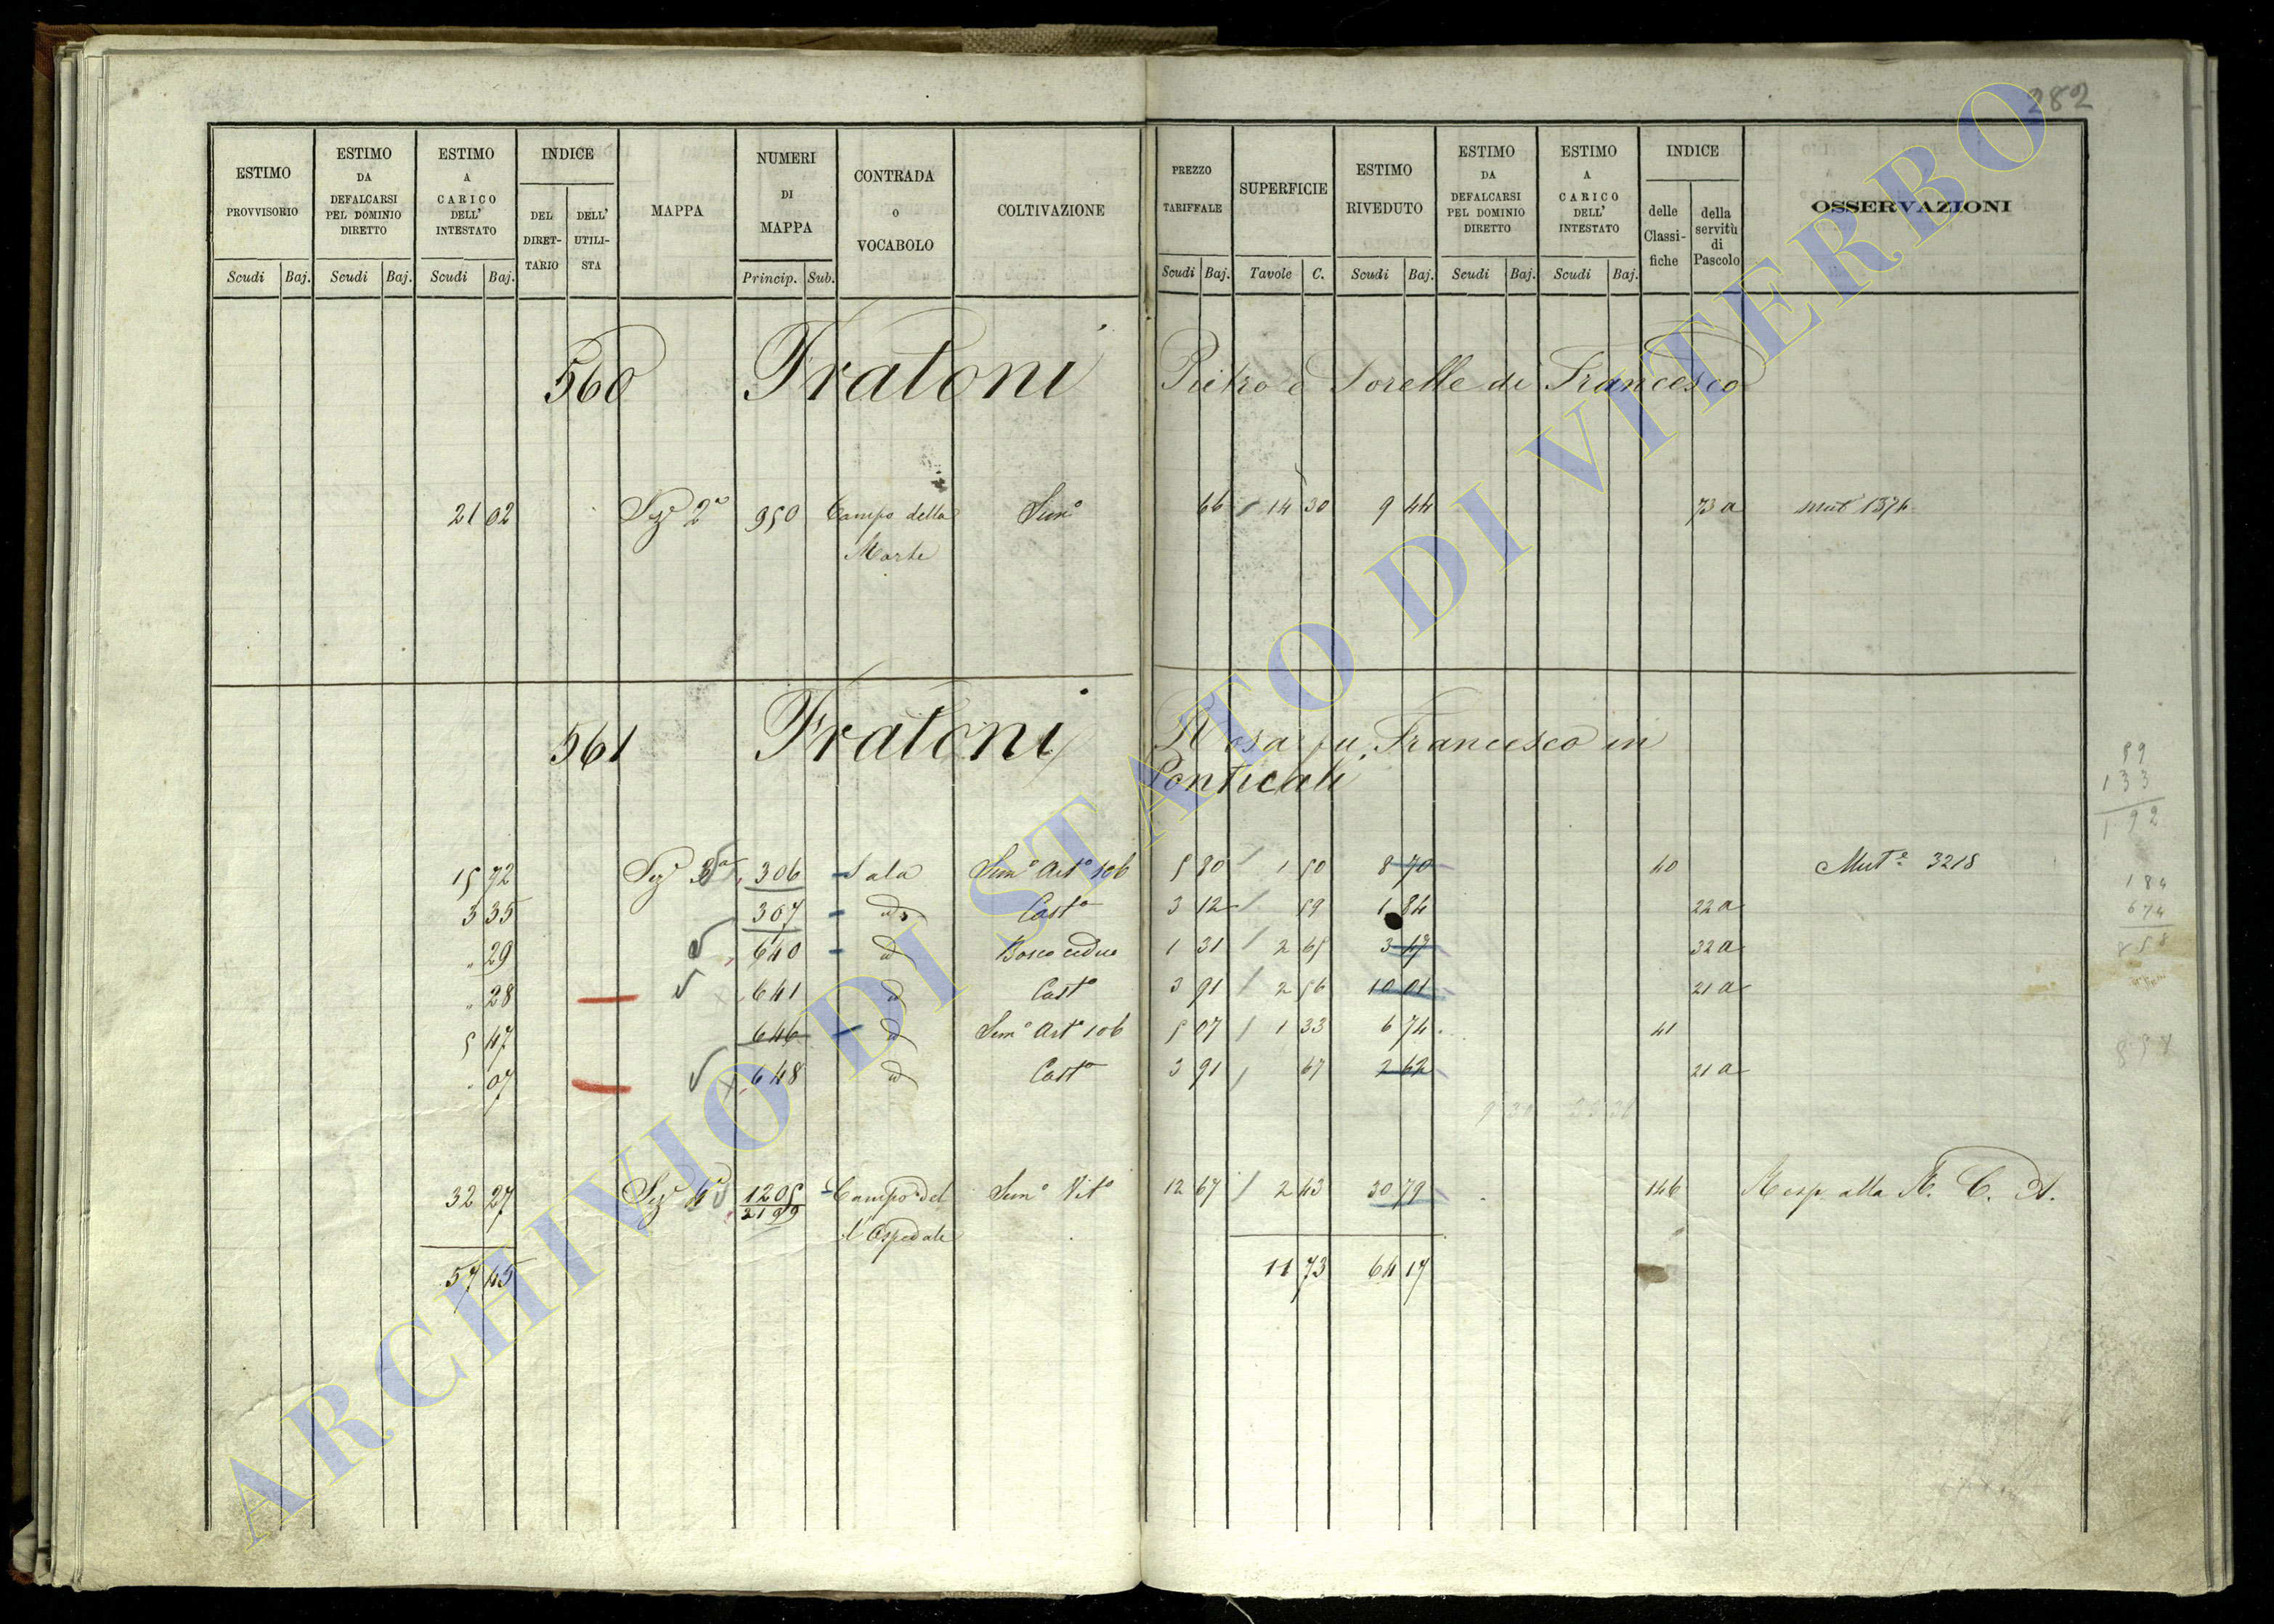 282
ESTIMO PROVVISORIO Scudi Baj. ESTIMO DA DEFALCARSI PEL DOMINIO DIRETTO Scudi Baj. ESTIMO A CARICO DELL' INTESTATO Scudi Baj. INDICE DEL DIRET-TARIO DELL' UTILI-STA MAPPA NUMERI DI MAPPA Princip. Sub. CONTRADA O VOCABOLO COLTIVAZIONE PREZZO TARIFFALE Scudi Baj. SUPERFICIE Tavole C. ESTIMO RIVEDUTO Scudi Baj. ESTIMO DA DEFALCARSI PEL DOMINIO DIRETTO Scudi Baj. ESTIMO A CARICO DELL' INTESTATO Scudi Baj. INDICE delle Classi-fiche della servitù di Pascolo OSSERVAZIONI
560 Fratoni Pietro e Sorelle di Francesco
21 02 Sez.e 2a 950 Campo della Sem.o 66 14 30 9 44 73 a mut 1374
Morte
561 Fratoni Rosa fu Francesco in
Ponticali
15 72 Sez.e 3a 306 Sala Sem.o Art.o 106 5 80 1 50 8 70 40 Mut.e 3218
3 35 307 id Cast.o 3 12 59 1 84 22 a
" 29 640 id Bosco ceduo 1 31 2 65 3 47 32 a
" 28 641 id Cast.o 3 91 2 56 10 01 21 a
5 47 646 id Sem.o Art.o 106 5 07 1 33 6 74 41
" 07 648 id Cast.o 3 91 67 2 62 21 a
32 27 Sez.e 1205 Campo del Sem.o Vit.o 12 67 2 43 30 79 146 Resp. alla R. C. A.
2199 l'Ospedale
57 45 11 73 64 17
59
133
1 92
184
674
858
858
ARCHIVIO DI STATO DI VITERBO